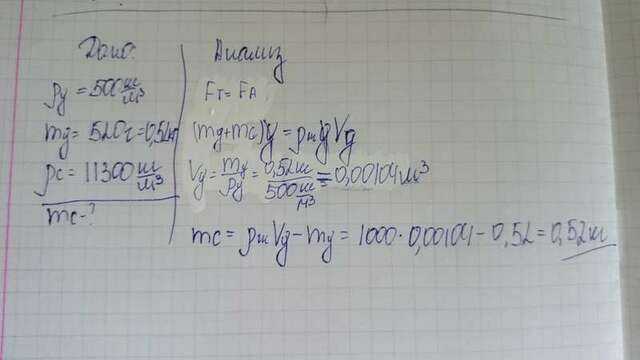 Дано:
ρд = 500 кг/м³
mд = 520г = 0,52кг
ρс = 11300 кг/м³
mc - ?
Анализ
Fт = FA
(mд + mc)g = ρж g Vд
Vд = mд/ρд = 0,52кг/500 кг/м³ = 0,00104 м³
mc = ρж Vд - mд = 1000 · 0,00104 - 0,52 = 0,52кг